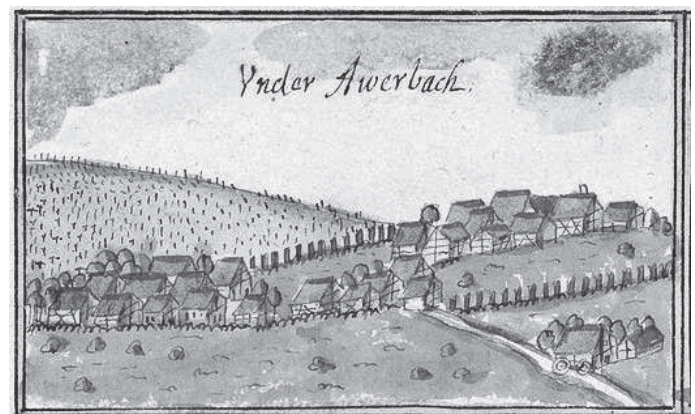 Vnder Awerbach.